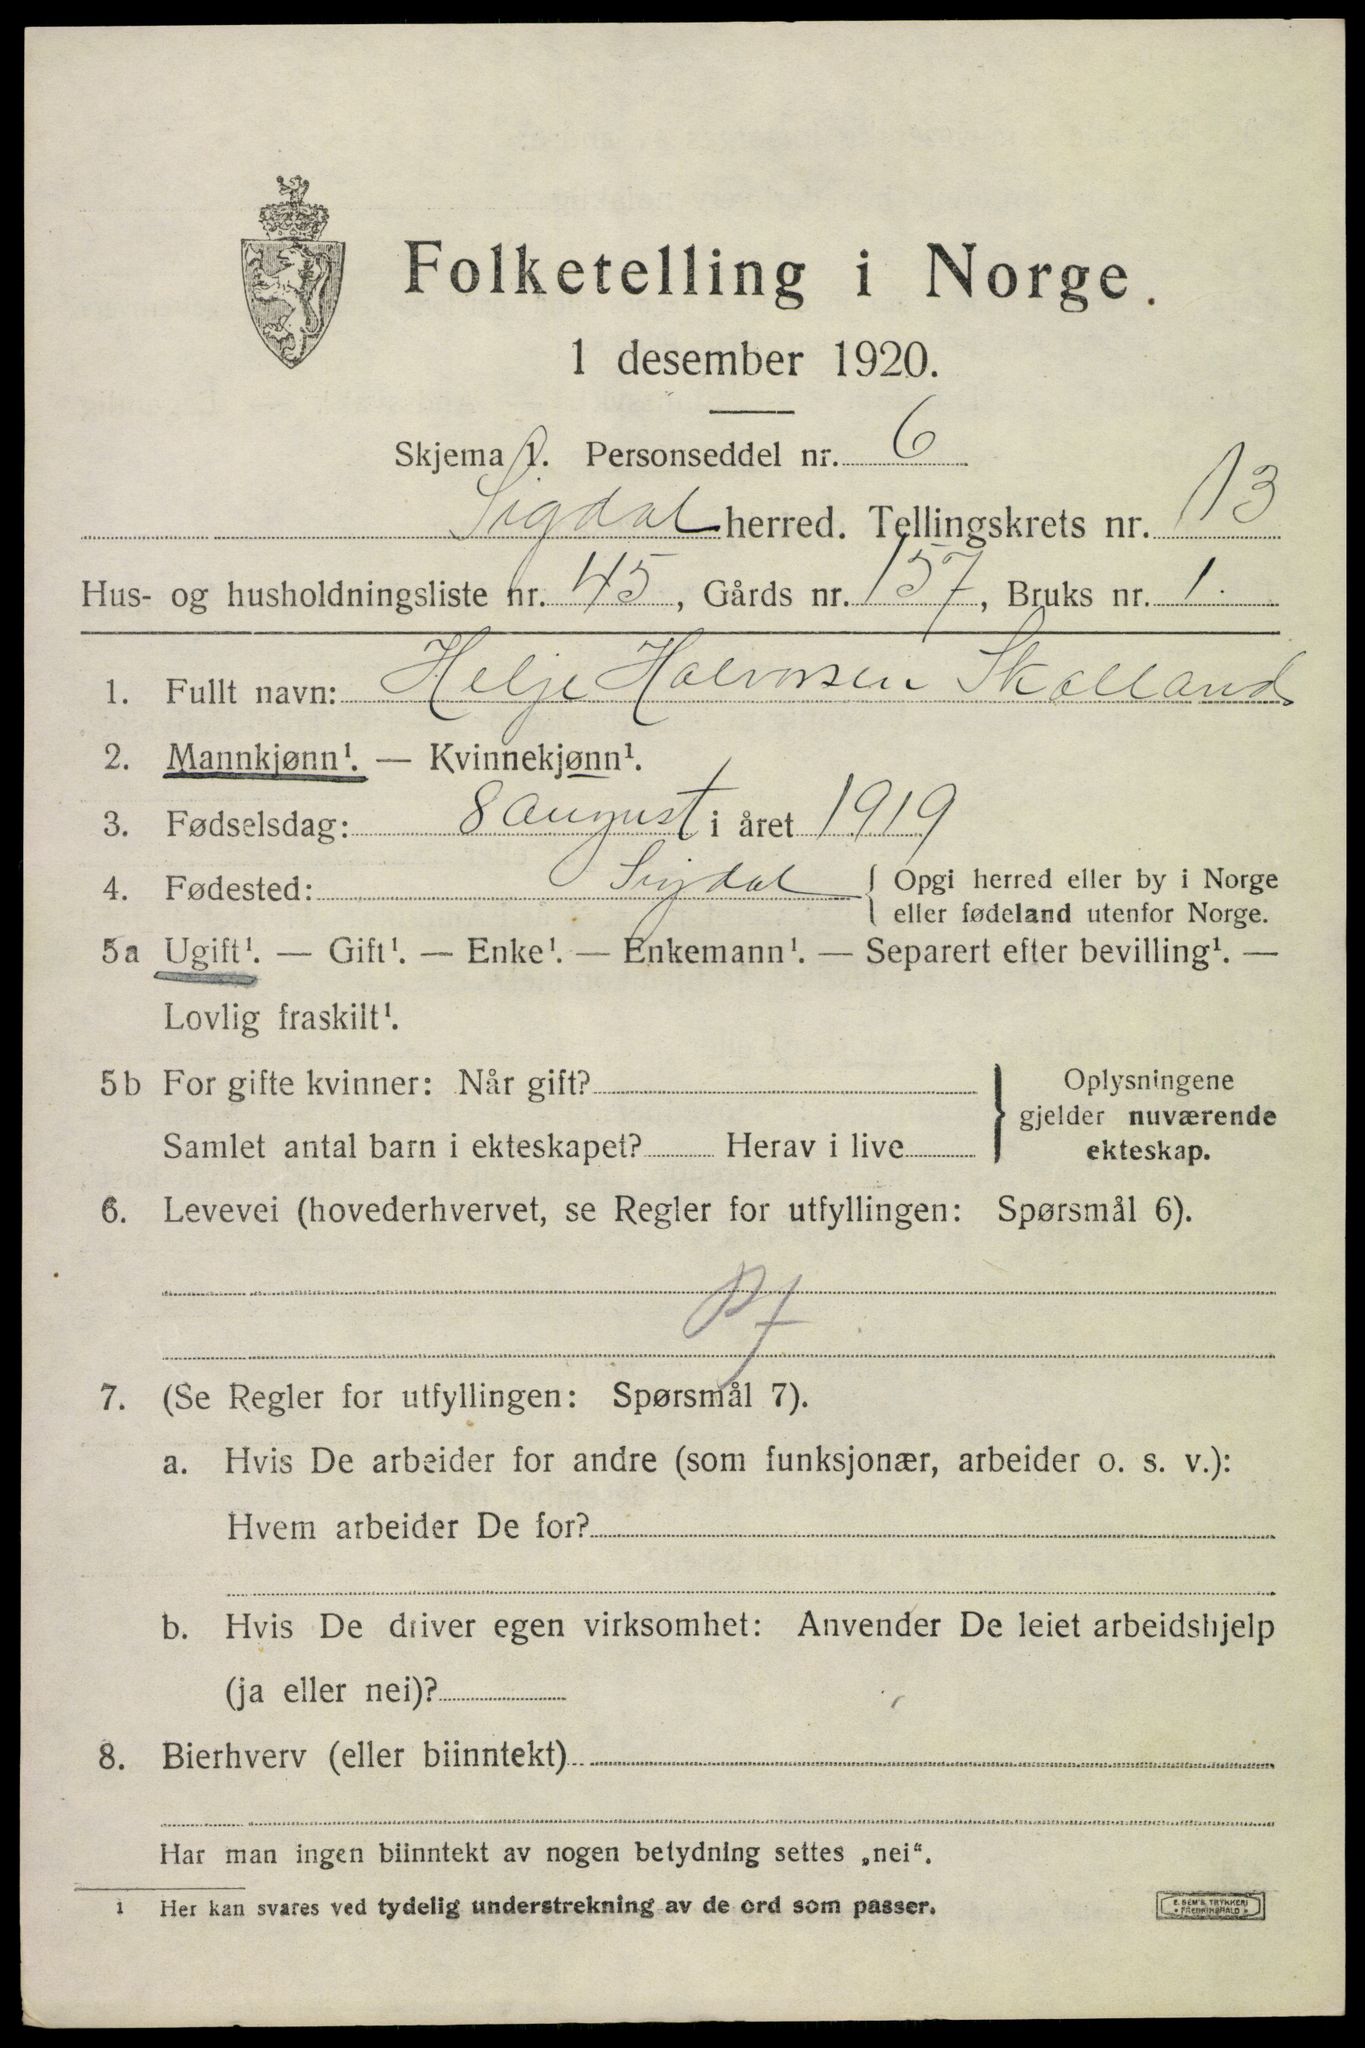 Folketelling i Norge.
1 desember 1920.
Skjema 1. Personseddel nr. 6
Sigdal herred. Tellingskrets nr. 13
Hus- og husholdningsliste nr. 45, Gårds nr. 157, Bruks nr. 1.
1. Fullt navn: Helje Halvorsen Skalland
2. Mannkjønn¹. — Kvinnekjønn¹.
3. Fødselsdag: 8 august i året 1919
4. Fødested: Sigdal { Opgi herred eller by i Norge
eller fødeland utenfor Norge.
5a Ugift¹. — Gift¹. — Enke¹. — Enkemann¹. — Separert efter bevilling¹. —
Lovlig fraskilt¹.
5b For gifte kvinner: Når gift?
Samlet antal barn i ekteskapet? Herav i live
} Oplysningene
gjelder nuværende
ekteskap.
6. Levevei (hovederhvervet, se Regler for utfyllingen: Spørsmål 6).
7. (Se Regler for utfyllingen: Spørsmål 7).
a. Hvis De arbeider for andre (som funksjonær, arbeider o. s. v.):
Hvem arbeider De for?
b. Hvis De driver egen virksomhet: Anvender De leiet arbeidshjelp
(ja eller nei)?
8. Bierhverv (eller biinntekt)
Har man ingen biinntekt av nogen betydning settes „nei“.
1 Her kan svares ved tydelig understrekning av de ord som passer.
E. SEM'S TRYKKERI
FREDRIKSHALD